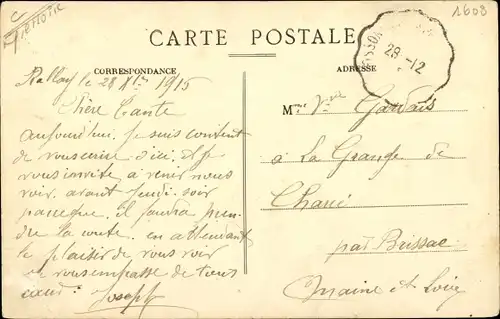 1608
CARTE POSTALE
29-12
CORRESPONDANCE
ADRESSE
le 28 Xbre 1915
Chère Tante
aujourd'hui je suis content
de vous écrire d'ici. et je
vous invite à venir nous
voir avant jeudi soir
parceque il faudra pren-
dre la route. en attendant
le plaisir de vous voir
je vous embrasse de tous
cœur. Joseph
Mme Vve Gervais
à La Grange de
par Brissac
Maine et Loire